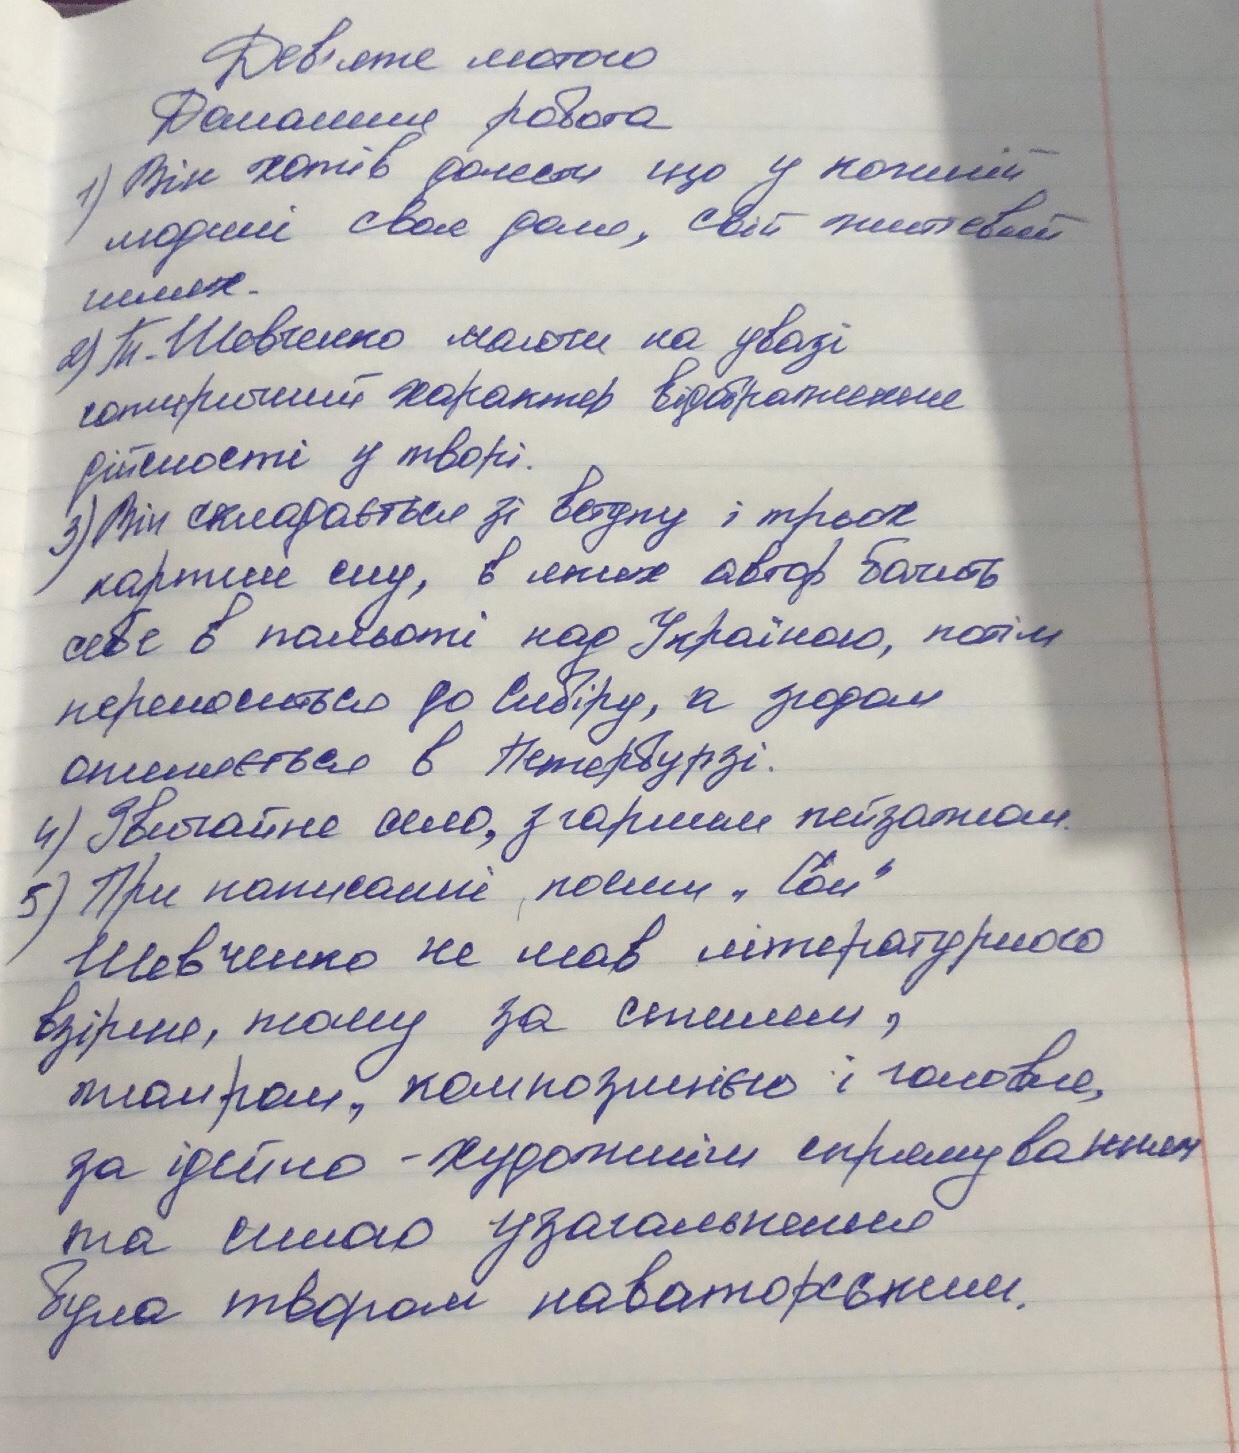 Дев'яте лютого
Домашня робота
1) Він хотів донести що у кожній
людині своя доля, свій життєвий
шлях.
2) Т. Шевченко мав на увазі
сатиричний характер відображення
дійсності у творі.
3) Він складається зі вступу і трьох
картин сну, в яких автор бачить
себе в польоті над Україною, потім
переноситься до Сибіру, а згодом
опиняється в Петербурзі.
4) Звичайне село, з гарним пейзажом.
5) При написанні поеми „Сон"
Шевченко не мав літературного
взірця, тому за стилем,
жанром, композицією і головне,
за ідейно-художнім спрямуванням
та силою узагальнення
була твором наваторським.